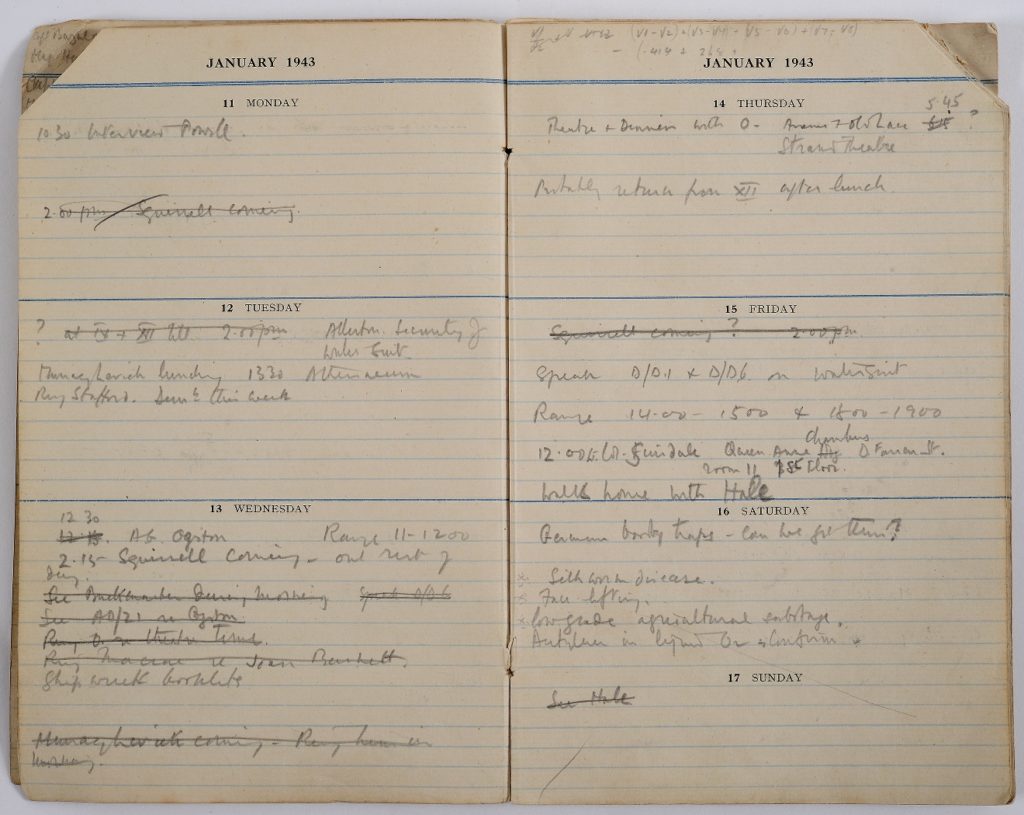 JANUARY 1943
11 MONDAY
10 30 Interview Powell.
2.00 pm Squirrell coming.
12 TUESDAY
? at IX + XII till 2.00pm
security of
water suit
lunch 1330 Athenaeum
Ring Stafford. this week
13 WEDNESDAY
12 30
12 15. Ogston Range 11-1200
2.15- Squirrell coming - out rest of
day.
See Buckmaster during morning Speak D/D6
See AD/Z1 re Ogston.
Ring O re theatre Terms.
Ring re Joan
Shipwreck booklets
coming - Ring him in
morning.
JANUARY 1943
14 THURSDAY
5.45
Theatre + Dinner with O - Arsenic + Old Lace ?
Strand Theatre
Probably return from XII after lunch.
15 FRIDAY
Squirrell coming ? 2.00pm.
Speak D/D.1 & D/D6 on watersuit
Range 14.00 - 1500 & 1800 - 1900
Chambers
12.00 Queen Anne
room 11 floor.
Walk home with Hale
16 SATURDAY
German booby traps - Can we get them?
Silkworm disease.
Face lifting.
low grade agricultural sabotage.
in liquid
17 SUNDAY
See Hale